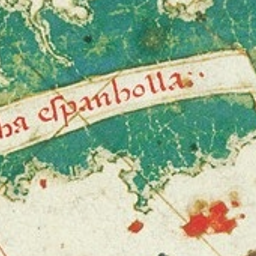 ha espanholla:·